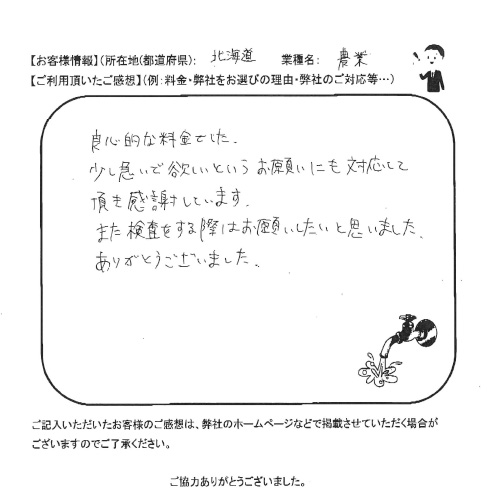 【お客様情報】(所在地(都道府県): 北海道 業種名: 農業
【ご利用頂いたご感想】(例:料金・弊社をお選びの理由・弊社のご対応等…)
良心的な料金でした。
少し急いで欲しいというお願いにも対応して
頂き感謝しています。
また検査をする際はお願いしたいと思いました。
ありがとうございました。
ご記入いただいたお客様のご感想は、弊社のホームページなどで掲載させていただく場合が
ございますのでご了承ください。
ご協力ありがとうございました。